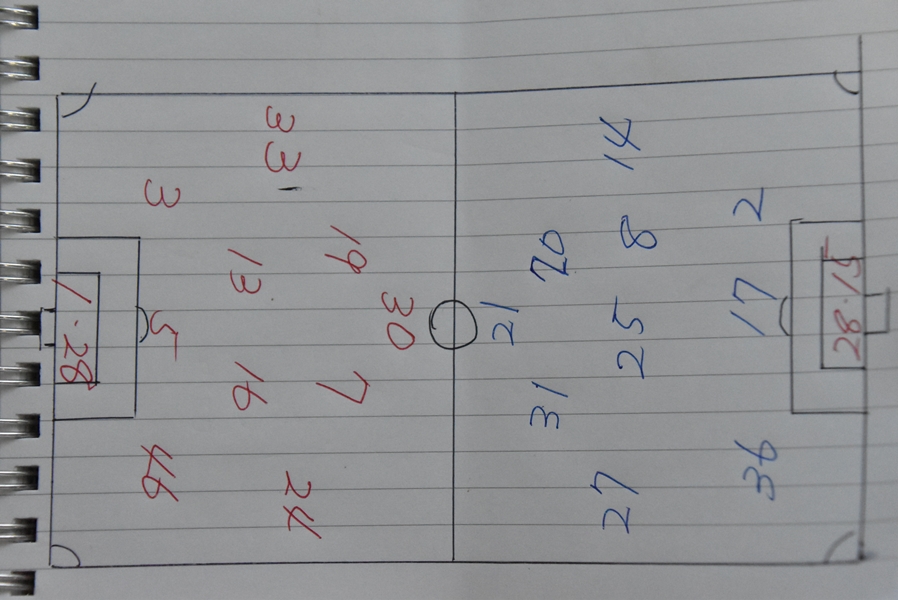 1·28
3 5 46
13 16
33 24
19 7
30
21
31 20
27 25 8 14
36 17 2
28·15